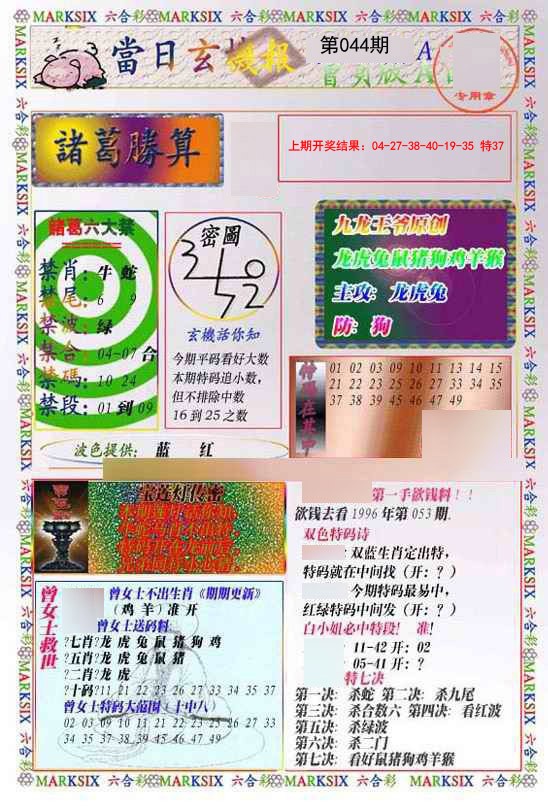 MARKSIX 六合彩 MARKSIX 六合彩 MARKSIX 六合彩 MARKSIX 六合彩
當日玄機報
第044期
A
专用章
諸葛勝算
上期开奖结果：04-27-38-40-19-35 特37
諸葛六大禁
禁肖：牛 蛇
禁尾：6 9
禁波：绿
禁合：04-07 合
禁碼：10 24
禁段：01 到 09
密圖
玄機話你知
今期平码看好大数
本期特码追小数，
但不排除中数
16 到 25 之数
九龙王爷原创
龙虎兔鼠猪狗鸡羊猴
主攻：龙虎兔
防：狗
01 02 03 09 10 11 13 14 15
21 22 23 25 26 27 33 34 35
37 38 39 45 46 47 49
波色提供： 蓝 红
宝莲灯传密
曾女士救世
曾女士不出生肖《期期更新》
（鸡 羊）准 开
曾女士送码料
?七肖?龙 虎 兔 鼠 猪 狗 鸡
?五肖?龙 虎 兔 鼠 猪
?二肖?龙 虎
?十码?11 21 22 23 26 27 33 34 35 37
曾女士特码大范围（十中八）
02 03 09 10 11 21 22 23 25 26 27 33
34 35 37 38 39 45 46 47 49
第一手欲钱料！！
欲钱去看 1996 年第 053 期.
双色特码诗
：双蓝生肖定出特，
特码就在中间找（开：？）
今期特码最易中，
红绿特码中间发（开：？）
白小姐必中特段！ 准！
11-42 开：02
05-41 开：？
特七决
第一决：杀蛇 第二决：杀九尾
第三决：杀合数六 第四决：看红波
第五决：杀绿波
第六决：杀二门
第七决：看好鼠猪狗鸡羊猴
MARKSIX 六合彩 MARKSIX 六合彩 MARKSIX 六合彩 MARKSIX 六合彩